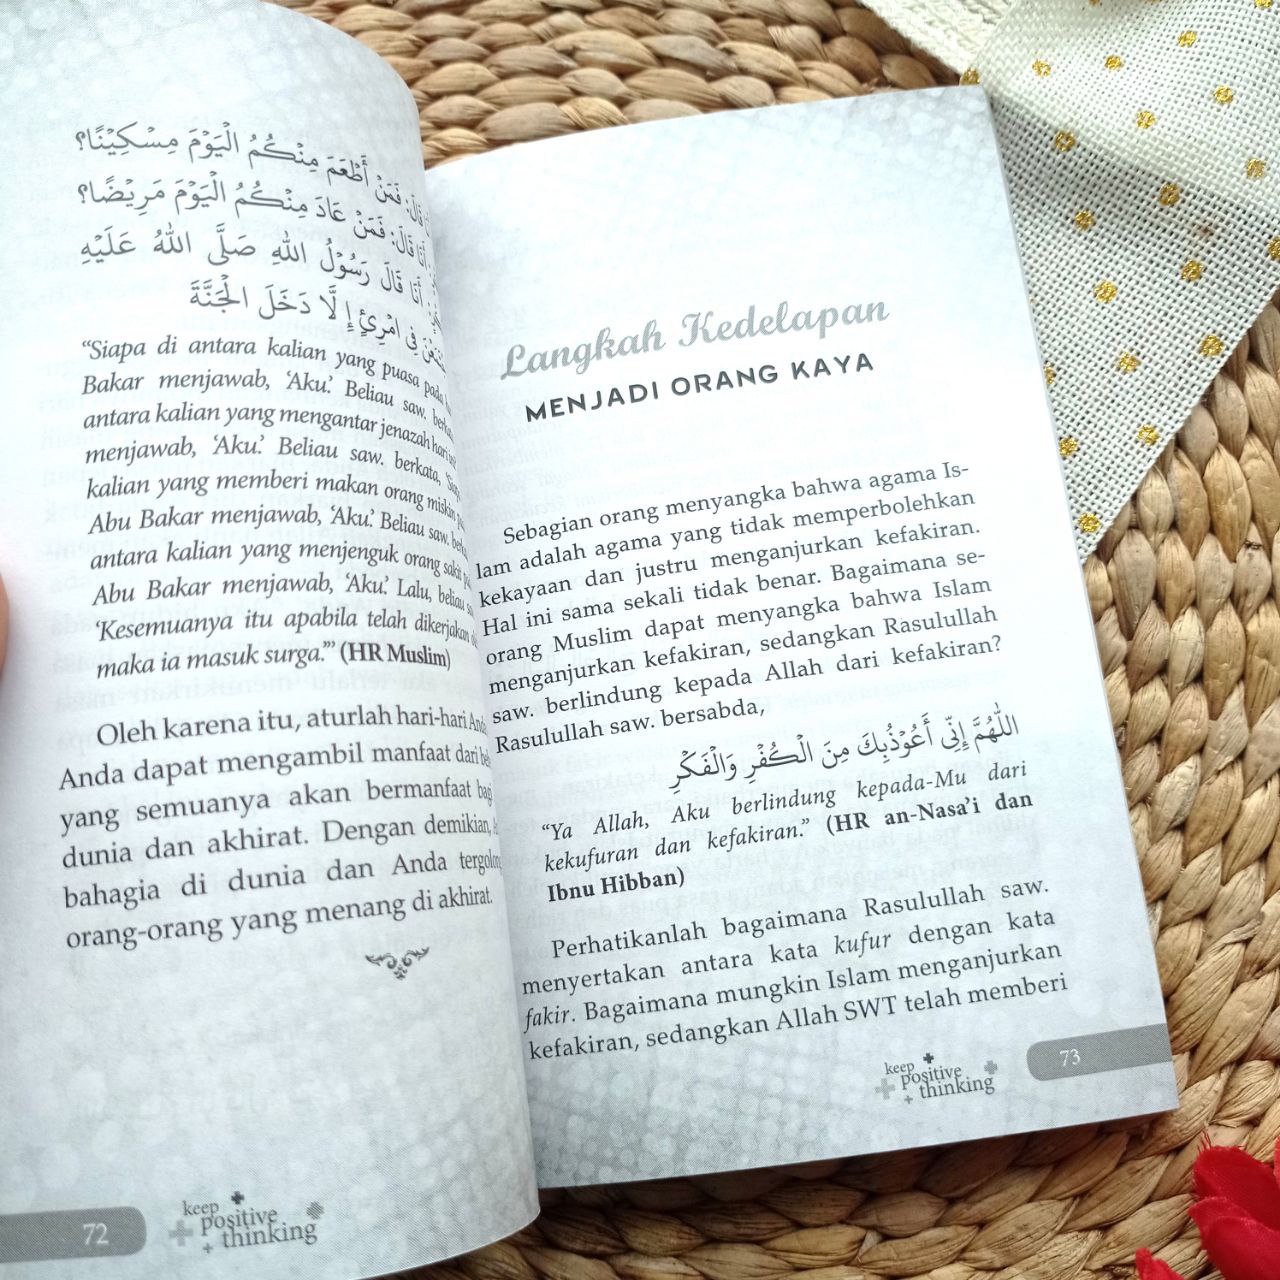 قَالَ: فَمَنْ أَطْعَمَ مِنْكُمُ الْيَوْمَ مِسْكِيْنًا؟
أَنَا قَالَ: فَمَنْ عَادَ مِنْكُمُ الْيَوْمَ مَرِيْضًا؟
أَنَا قَالَ رَسُوْلُ اللهِ صَلَّى اللهُ عَلَيْهِ
فِي امْرِئٍ إِلَّا دَخَلَ الْجَنَّةَ
“Siapa di antara kalian yang puasa pada
Bakar menjawab, ‘Aku.’ Beliau saw.
antara kalian yang mengantar jenazah hari
menjawab, ‘Aku.’ Beliau saw. berkata,
kalian yang memberi makan orang miskin
Abu Bakar menjawab, ‘Aku.’ Beliau saw.
antara kalian yang menjenguk orang sakit
Abu Bakar menjawab, ‘Aku.’ Lalu, beliau
‘Kesemuanya itu apabila telah dikerjakan
maka ia masuk surga.’” (HR Muslim)
Oleh karena itu, aturlah hari-hari Anda
Anda dapat mengambil manfaat dari
yang semuanya akan bermanfaat
dunia dan akhirat. Dengan demikian,
bahagia di dunia dan Anda
orang-orang yang menang di akhirat.
72
keep
positive
thinking
Langkah Kedelapan
MENJADI ORANG KAYA
Sebagian orang menyangka bahwa agama Is-
lam adalah agama yang tidak memperbolehkan
kekayaan dan justru menganjurkan kefakiran.
Hal ini sama sekali tidak benar. Bagaimana se-
orang Muslim dapat menyangka bahwa Islam
menganjurkan kefakiran, sedangkan Rasulullah
saw. berlindung kepada Allah dari kefakiran?
Rasulullah saw. bersabda,
اللّٰهُمَّ إِنِّى أَعُوْذُبِكَ مِنَ الْكُفْرِ وَالْفَكْرِ
“Ya Allah, Aku berlindung kepada-Mu dari
kekufuran dan kefakiran.” (HR an-Nasa’i dan
Ibnu Hibban)
Perhatikanlah bagaimana Rasulullah saw.
menyertakan antara kata kufur dengan kata
fakir. Bagaimana mungkin Islam menganjurkan
kefakiran, sedangkan Allah SWT telah memberi
keep
positive
thinking
73